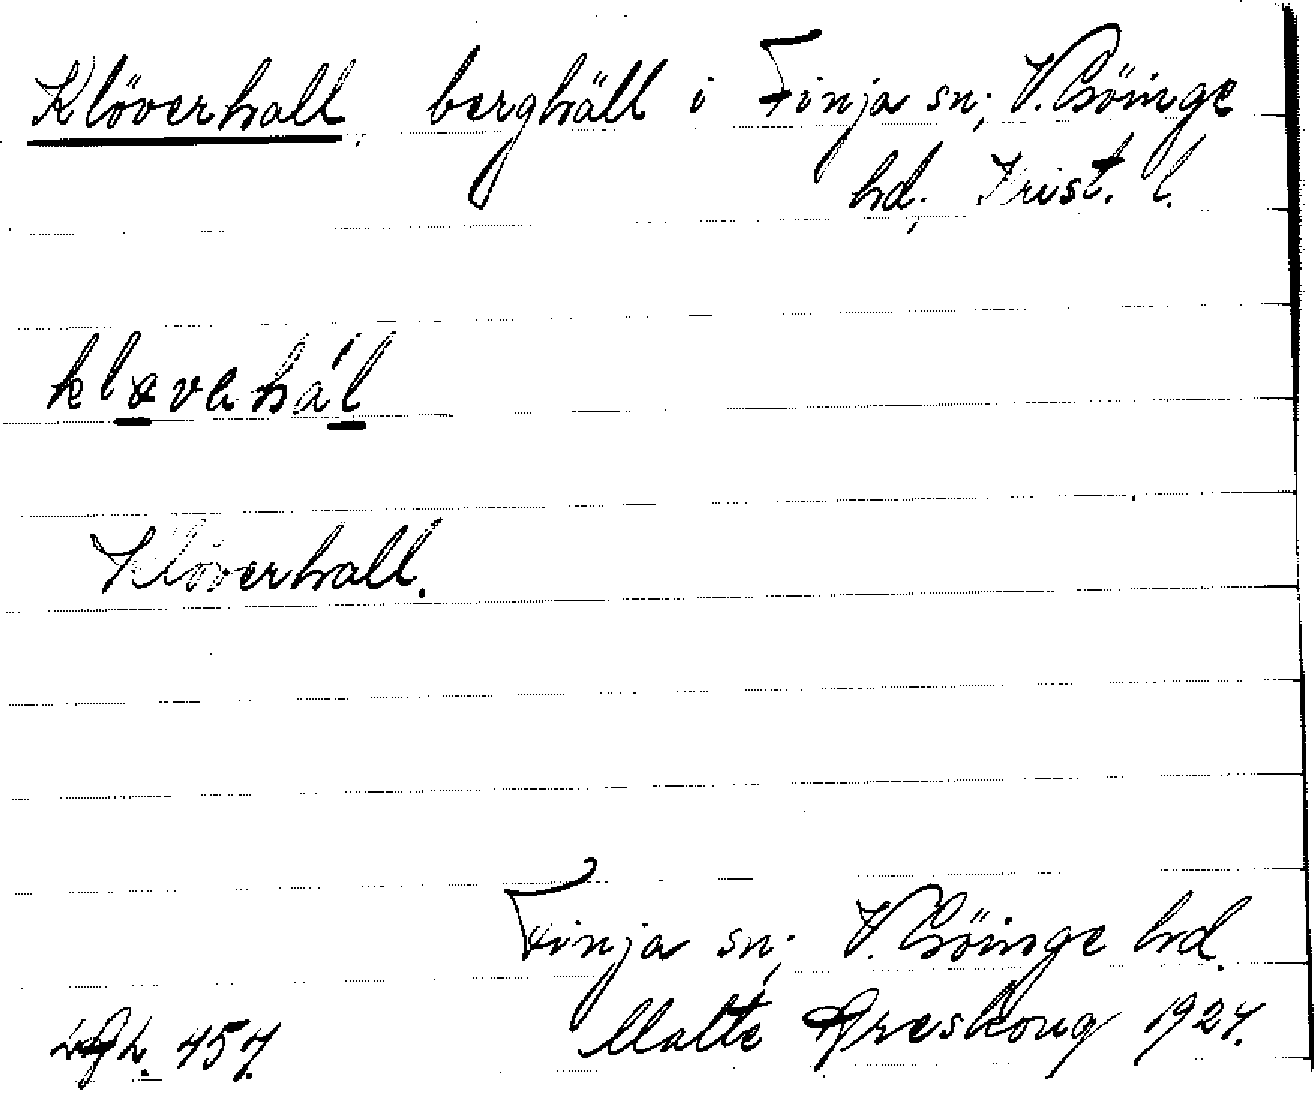 Klöverhall, berghäll i Finja sn; V. Göinge
hd; Krist. l.
kløvahál
Klöverhall.
Finja sn; V. Göinge hd.
457. Malte Areskoug 1924.